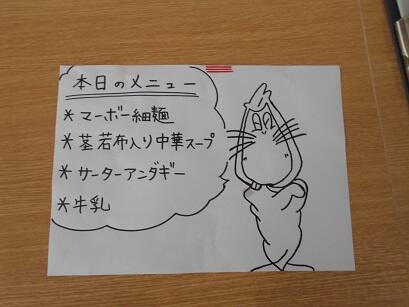 本日のメニュー
* マーボー細麺
* 茎若布入り中華スープ
* サーターアンダギー
* 牛乳